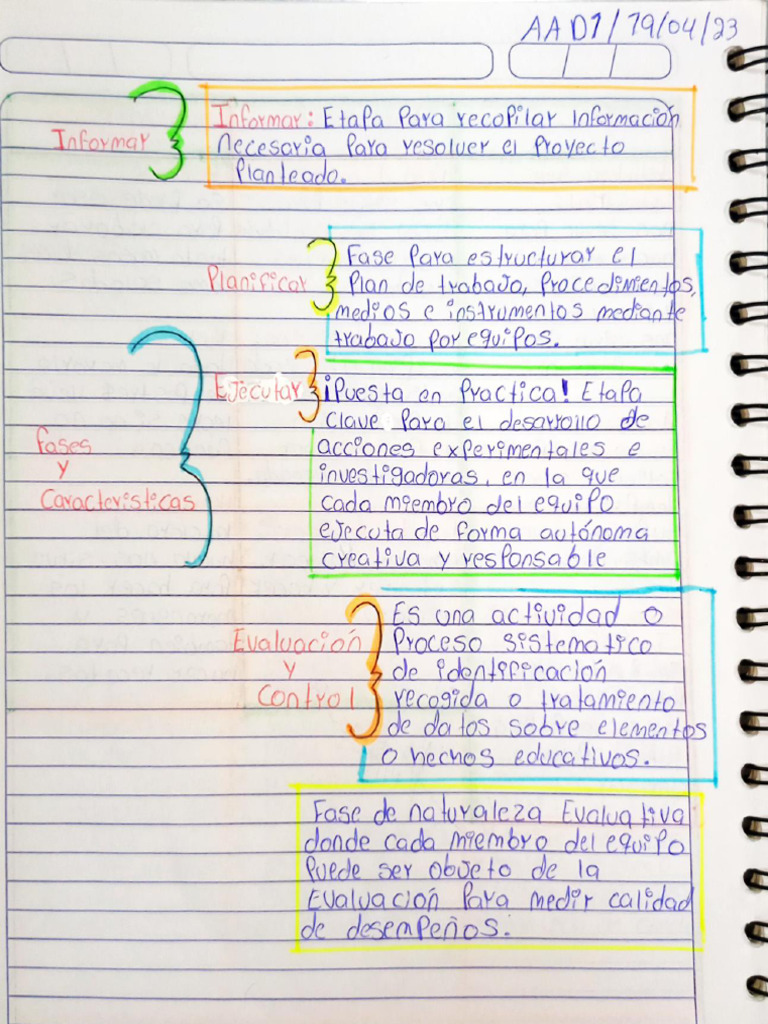 AAD1/19/04/23
Informar
Informar: Etapa Para recopilar información
necesaria Para resolver el Proyecto
Planteado.
Planificar
Fase Para estructurar el
Plan de trabajo, Procedimientos,
medios e instrumentos mediante
trabajo por equipos.
Fases
y
Características
Ejecutar
¡Puesta en Practica! Etapa
Clave Para el desarrollo de
acciones experimentales e
investigadoras, en la que
cada miembro del equipo
ejecuta de forma autónoma
creativa y responsable
Evaluación
y
Control
Es una actividad o
Proceso sistematico
de identificación
recogida o tratamiento
de datos sobre elementos
o hechos educativos.
Fase de naturaleza Evaluativa
donde cada miembro del equipo
Puede ser objeto de la
Evaluación Para medir calidad
de desempeños.